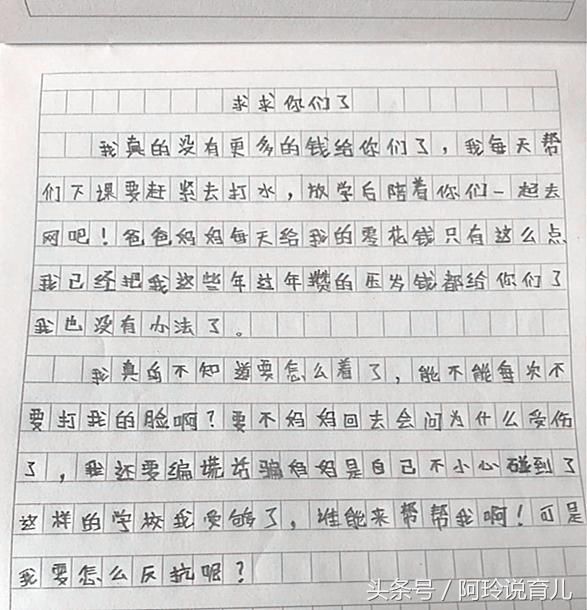 求求你们了
我真的没有更多的钱给你们了，我每天帮
们下课要赶紧去打水，放学后陪着你们一起去
网吧！爸爸妈妈每天给我的零花钱只有这么点
我已经把我这些年过年攒的压岁钱都给你们了
我也没有办法了。
我真的不知道要怎么着了，能不能每次不
要打我的脸啊？要不妈妈回去会问为什么受伤
了，我还要编谎话骗妈妈是自己不小心碰到了
这样的学校我受够了，谁能来帮帮我啊！可是
我要怎么反抗呢？
头条号／阿玲说育儿